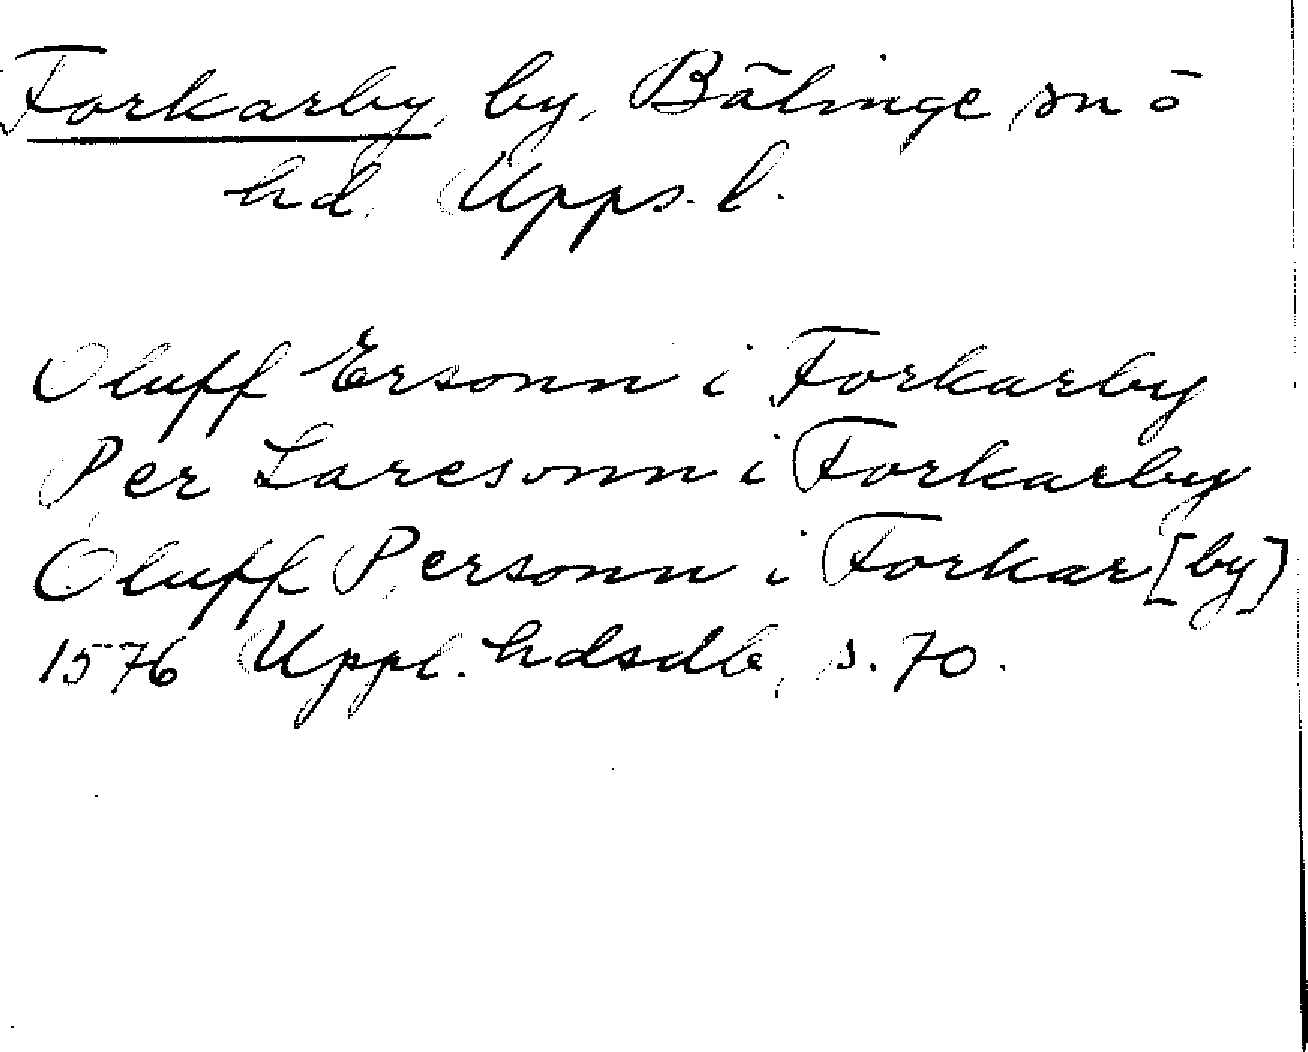 Forkarby, by, Bälinge sn o
hd. Upps. l.
Oluff Ersonn i Forkarby
Per Laressonn i Forkarby
Oluff Personn i Forkar[by]
1576 Uppl. hdsdb, s. 70.